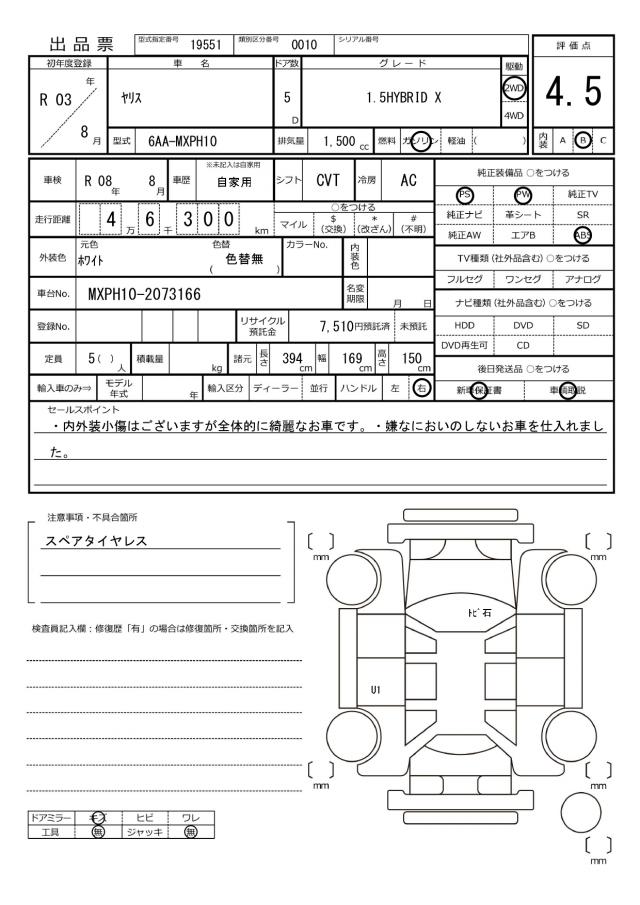 出品票 型式指定番号 19551 類別区分番号 0010 シリアル番号
評価点
4.5
内装 A B C
初年度登録 車名 ドア数 グレード 駆動
R 03 年 8 月
ヤリス
5 D
1.5HYBRID X
2WD
4WD
型式 6AA-MXPH10 排気量 1,500 cc 燃料 ガソリン 軽油 ( )
車検 R 08 年 8 月 車歴 ※未記入は自家用 自家用 シフト CVT 冷房 AC
走行距離 4 万 6 千 300 km
○をつける
マイル $(交換) *(改ざん) #(不明)
外装色 元色 ホワイト 色替 ( 色替無 ) カラーNo. 内装色
車台No. MXPH10-2073166 名変期限 月 日
登録No. リサイクル預託金 7,510円預託済 未預託
定員 5( )人 積載量 kg 諸元 長さ 394 cm 幅 169 cm 高さ 150 cm
輸入車のみ⇒ モデル年式 年 輸入区分 ディーラー 並行 ハンドル 左 右
純正装備品 ○をつける
PS PW 純正TV
純正ナビ 革シート SR
純正AW エアB ABS
TV種類(社外品含む)○をつける
フルセグ ワンセグ アナログ
ナビ種類(社外品含む)○をつける
HDD DVD SD
DVD再生可 CD
後日発送品 ○をつける
新車保証書 車輌取説
セールスポイント
・内外装小傷はございますが全体的に綺麗なお車です。・嫌なにおいのしないお車を仕入れまし
た。
注意事項・不具合箇所
スペアタイヤレス
検査員記入欄：修復歴「有」の場合は修復箇所・交換箇所を記入
〔 〕 mm
〔 〕 mm
ﾄﾋﾞ石
U1
〔 〕 mm
〔 〕 mm
〔 〕 mm
ドアミラー キズ ヒビ ワレ
工具 無 ジャッキ 無